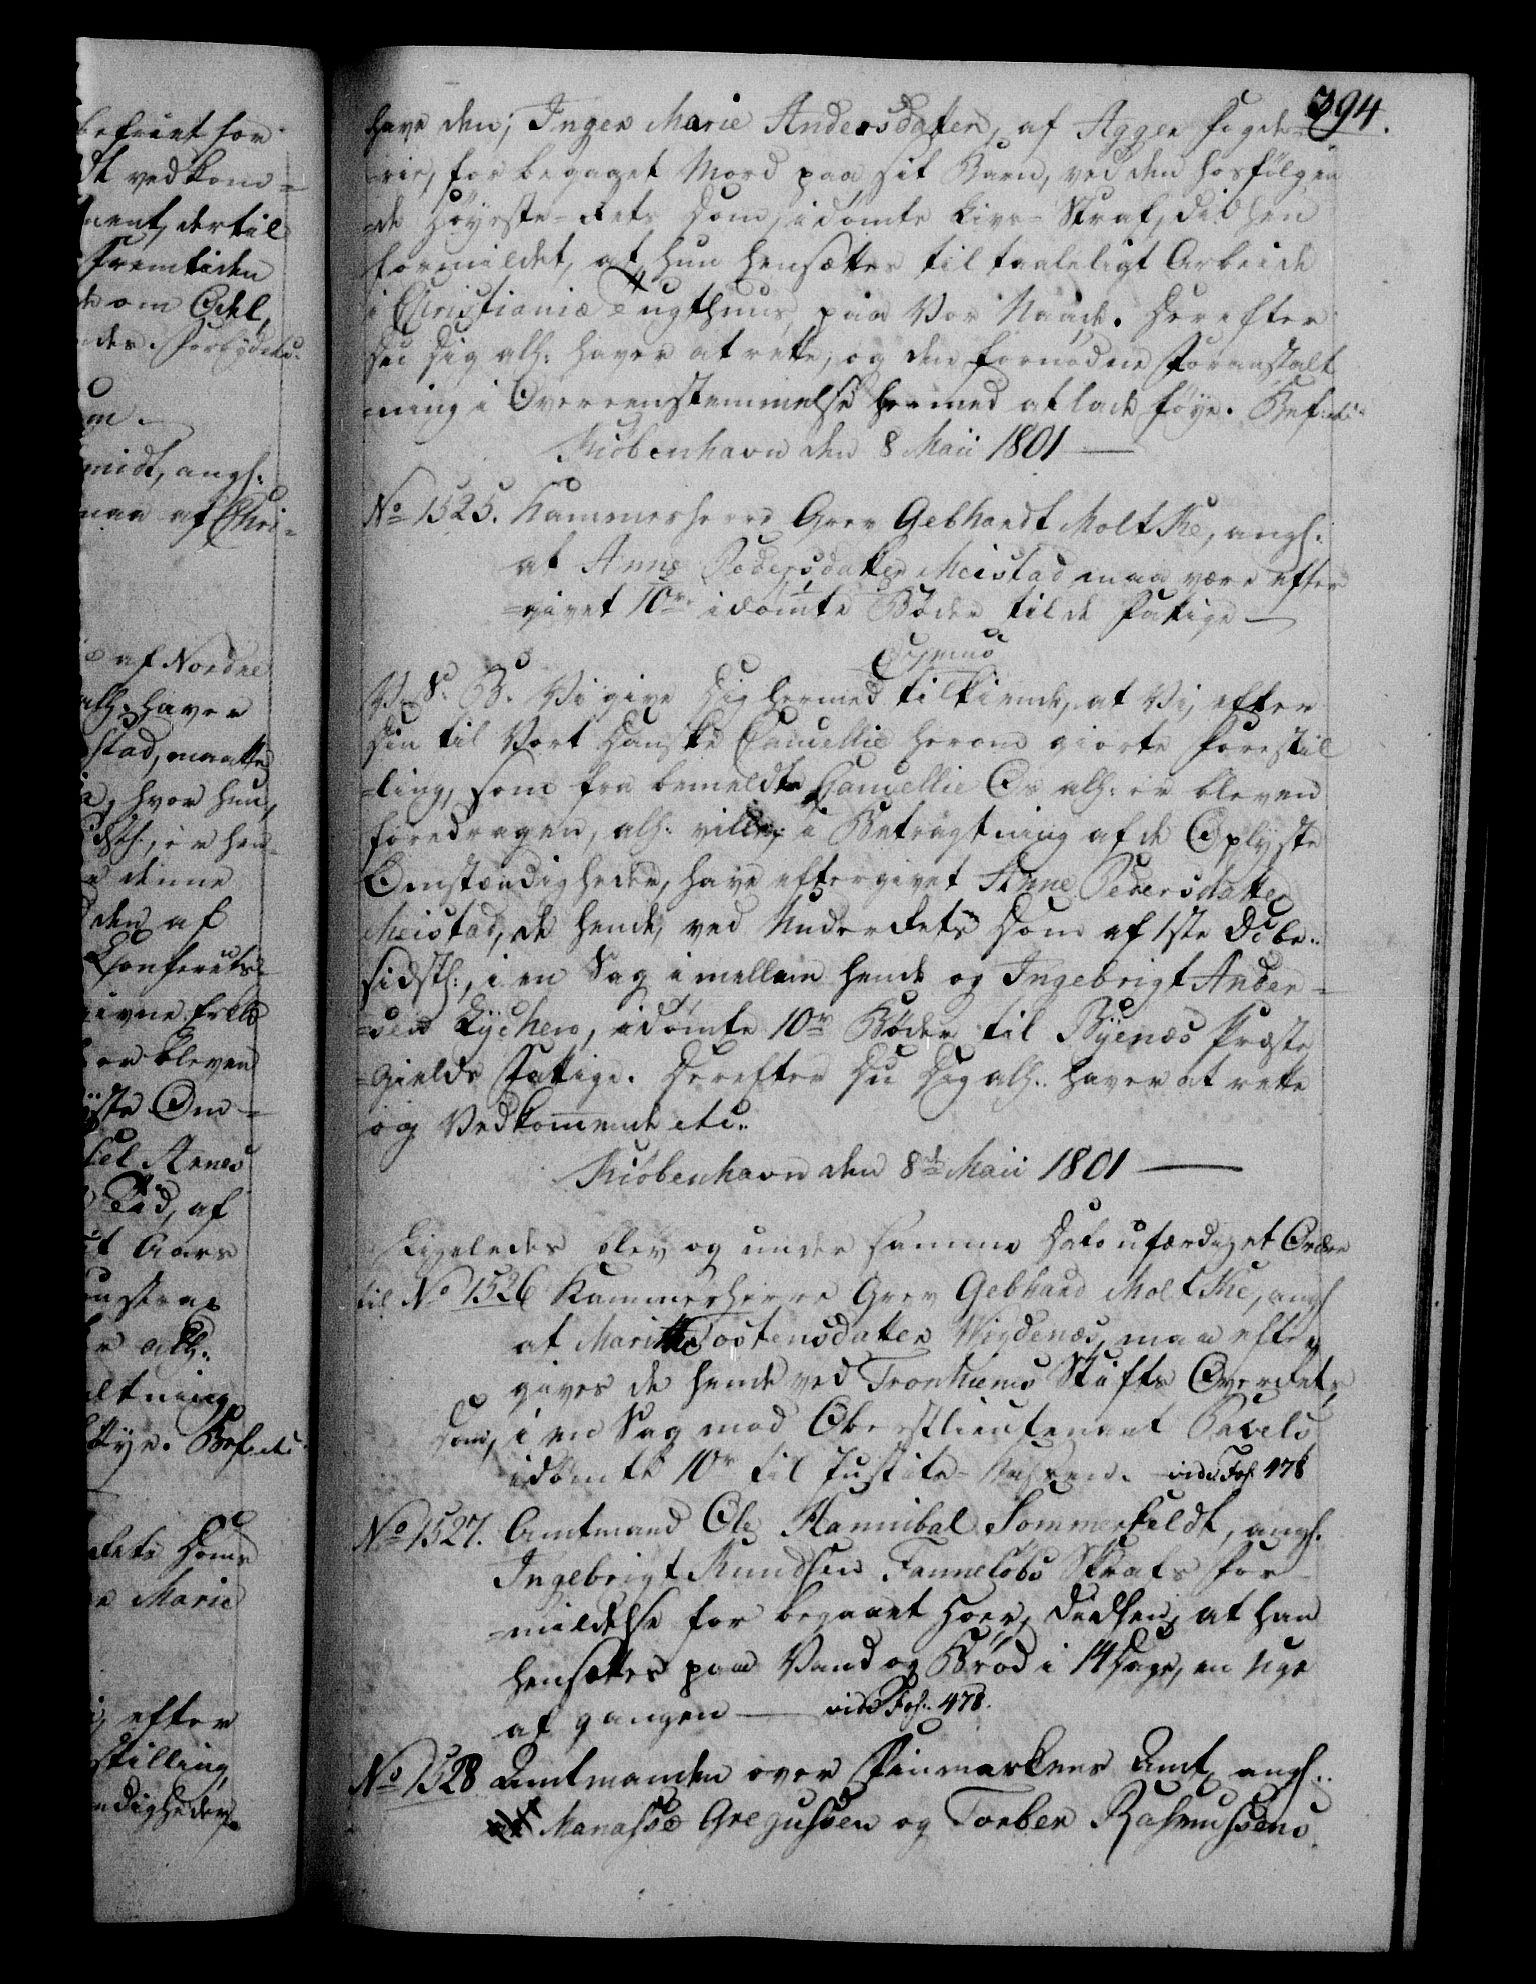 394.
have den, Inger Marie Andersdatter, af Aggers Fogde-
rie, for begaaet Mord paa sit Barn, ved den hosfölgen
-de Höyeste-Rets Dom, idömte Livs-Straf, didhen
formildet, at hun hensættes til taaleligt Arbeide
i Christianiæ Tugthuus, paa Vor Naade. Derefter
Du Dig alh: haver at rette, og den fornödne Foranstalt
-ning i Overeenstemmelse hermed at lade föye. Bef: etc:
Kiöbenhavn den 8 Maii 1801
No 1525. Kammerherre Grev Gebhardt Moltke, angl:
at Anne Pedersdatter Meistad maa være efter
-givet 10rd idömte Böder til de Fattige
V. S. B. Vi give Dig hermed tilkiende, at Vi, efter
Din til Vort Danske Cancellie herom giorte Forestil
-ling, som fra bemeldte Cancellie Os alh: er bleven
foredragen, alh: ville, i Betragtning af de Oplyste
Omstændigheder, have eftergivet Anne Pedersdatter
Meistad, de hende, ved Underrets Dom af 1ste Decbr:
sidstl:, i en Sag imellem hende og Ingebrigt Ander-
-sen Lychens, idömte 10rd Böder til Byenæs Præste
-gields Fattige. Derefter Du Dig alh: haver at rette
og Vedkommende etc:
Kiöbenhavn den 8de Maii 1801
Ligeledes blev og under samme Dato ufærdiget Ordre
til No 1526 Kammerherre Grev Gebhard Moltke, angl
at Maritte Tostensdatter Wigdenæs, maa efter
gives de hende ved Tronhiems Stifts Overrets
Dom, i en Sag mod Oberstlieutenant Pavels
idömte 10rd til Justits-Kassen. vide Fol: 478
No 1527. Amtmand Ole Hannibal Sommerfeldt, angl:
Ingebrigt Knudsen Fannelöbs Strafs For
-mildelse for begaaet Hoer, didhen, at han
hensættes paa Vand og Bröd i 14 Dage, en Uge
af gangen vide Fol: 478.
No 1528 Amtmanden over Finmarkens Amt, angl:
Manasse Gregussen og Torber Rasmussens